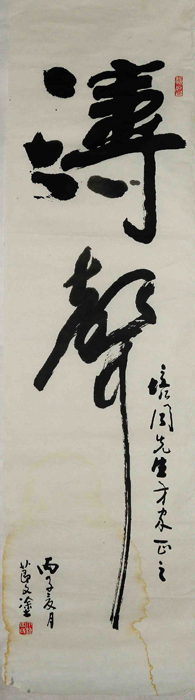 濤聲
培園先生方家正之
丙子夏月